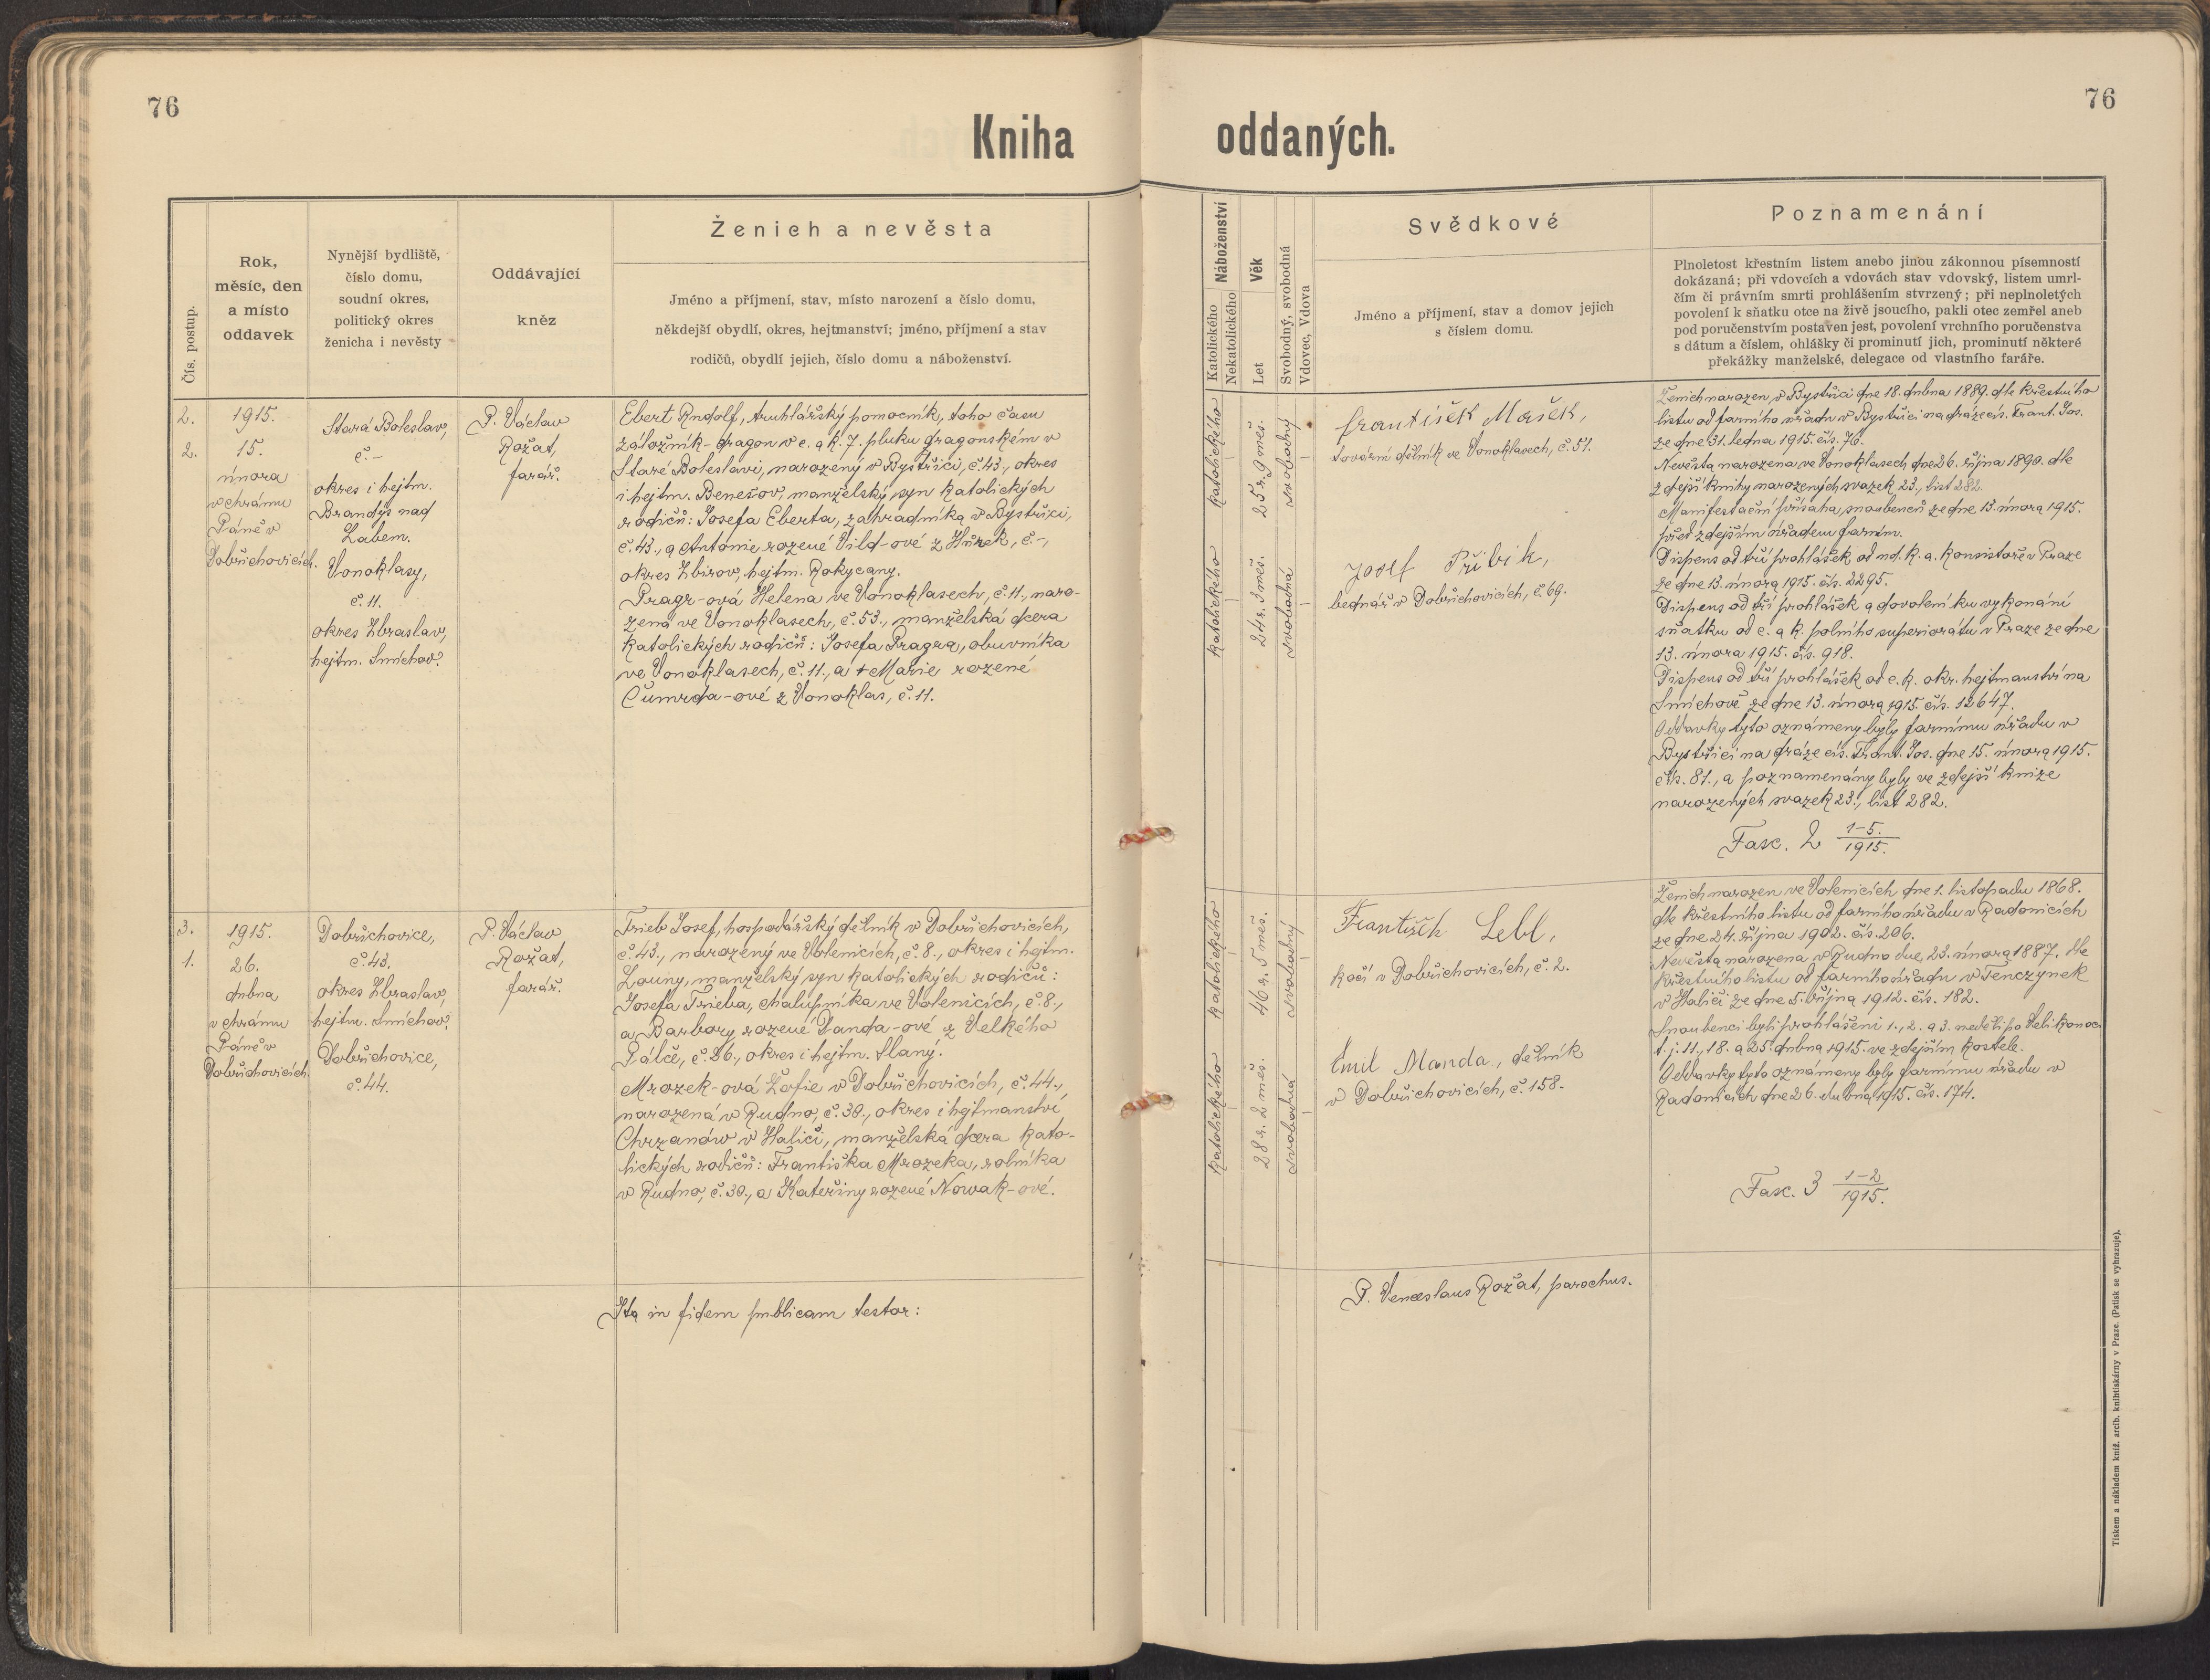 76
76
Kniha oddaných.
Čís. postup.
Rok,
měsíc, den
a místo
oddavek
Nynější bydliště,
číslo domu,
soudní okres,
politický okres
ženicha i nevěsty
Oddávající
kněz
Ženich a nevěsta
Jméno a příjmení, stav, místo narození a číslo domu,
někdejší obydlí, okres, hejtmanství; jméno, příjmení a stav
rodičů, obydlí jejich, číslo domu a náboženství.
Náboženství
Katolického
Nekatolického
Věk
Let
Svobodný, svobodná
Vdovec, Vdova
Svědkové
Jméno a příjmení, stav a domov jejich
s číslem domu.
Poznamenání
Plnoletost křestním listem anebo jinou zákonnou písemností
dokázaná; při vdovcích a vdovách stav vdovský, listem umrl-
čím či právním smrti prohlášením stvrzený; při neplnoletých
povolení k sňatku otce na živě jsoucího, pakli otec zemřel aneb
pod poručenstvím postaven jest, povolení vrchního poručenstva
s dátum a číslem, ohlášky či prominutí jich, prominutí některé
překážky manželské, delegace od vlastního faráře.
2.
2.
1915.
15.
února
v chrámu
Páně v
Dobřichovicích.
Stará Boleslav,
č.-
okres i hejtm.
Brandýs nad
Labem.
Vonoklasy,
č. 11.
okres Zbraslav,
hejtm. Smíchov.
P. Václav
Rožat,
farář.
Ebert Rudolf, truhlářský pomocník, toho času
záložník-dragon v c. a k. 7. pluku dragonském v
Staré Boleslavi, narozený v Bystřici, č. 43., okres
i hejtm. Benešov, manželský syn katolických
rodičů: Josefa Eberta, zahradníka v Bystřici,
č. 43., a Antonie rozené Vild-ové z Hůrek, č.-,
okres Zbirov, hejtm. Rokycany.
Pragr-ová Helena ve Vonoklasech, č. 11., naro-
zená ve Vonoklasech, č. 53., manželská dcera
katolických rodičů: Josefa Pragra, obuvníka
ve Vonoklasech, č. 11., a + Marie rozené
Čumrda-ové z Vonoklas, č. 11.
Katolického
25 r. 9 měs.
svobodný
Katolického
24 r. 3 měs.
svobodná
František Mašek,
tovární dělník ve Vonoklasech, č. 51.
Josef Přibík,
bednář v Dobřichovicích, č. 69.
Ženich narozen v Bystřici dne 18. dubna 1889. dle křestního
listu od farního úřadu v Bystřici na dráze cís. Frant. Jos.
ze dne 31. ledna 1915. čís. 76.
Nevěsta narozena ve Vonoklasech dne 26. října 1890. dle
zdejší knihy narozených svazek 23., list 282.
Manifestační přísaha snoubenců ze dne 13. února 1915.
před zdejším úřadem farním.
Dispens od tří prohlášek od nd. k. a. konsistoře v Praze
ze dne 13. února 1915. čís. 2295.
Dispens od tří prohlášek a dovolení ku vykonání
sňatku od c. a k. polního superiorátu v Praze ze dne
13. února 1915. čís. 918.
Dispens od tří prohlášek od c. k. okr. hejtmanství na
Smíchově ze dne 13. února 1915. čís. 12647.
Oddavky tyto oznámeny byly farnímu úřadu v
Bystřici na dráze cís. Frant. Jos. dne 15. února 1915.
čís. 81., a poznamenány byly ve zdejší knize
narozených svazek 23., list 282.
Fasc. 2 1-5./1915.
3.
1.
1915.
26.
dubna
v chrámu
Páně v
Dobřichovicích.
Dobřichovice,
č. 43.
okres Zbraslav,
hejtm. Smíchov.
Dobřichovice,
č. 44.
P. Václav
Rožat,
farář.
Trieb Josef, hospodářský dělník v Dobřichovicích,
č. 43., narozený ve Volenicích, č. 8., okres i hejtm.
Louny, manželský syn katolických rodičů:
Josefa Trieba, chalupníka ve Volenicích, č. 8.,
a Barbory rozené Vanda-ové z Velkého
Pálče, č. 26., okres i hejtm. Slaný.
Mrozek-ová Žofie v Dobřichovicích, č. 44.,
narozená v Rudno, č. 30., okres i hejtmanství
Chrzanów v Haliči, manželská dcera kato-
lických rodičů: Františka Mrozeka, rolníka
v Rudno, č. 30., a Kateřiny rozené Nowak-ové.
Katolického
46 r. 5 měs.
svobodný
Katolického
28 r. 2 měs.
svobodná
František Lebl,
kočí v Dobřichovicích, č. 2.
Emil Manda, dělník
v Dobřichovicích, č. 158.
Ženich narozen ve Volenicích dne 1. listopadu 1868.
dle křestního listu od farního úřadu v Radonicích
ze dne 24. října 1902. čís. 206.
Nevěsta narozena v Rudno dne 23. února 1887. dle
křestního listu od farního úřadu v Tenczynek
v Haliči ze dne 5. října 1912. čís. 182.
Snoubenci byli prohlášeni 1., 2. a 3. neděli po Velikonoc.
t. j. 11., 18. a 25. dubna 1915. ve zdejším kostele.
Oddavky tyto oznámeny byly farnímu úřadu v
Radonicích dne 26. dubna 1915. čís. 174.
Fasc. 3 1-2/1915.
Ita in fidem publicam testor:
P. Venceslaus Rožat, parochus.
Tiskem a nákladem kníž. arcib. knihtiskárny v Praze. (Patisk se vyhrazuje).